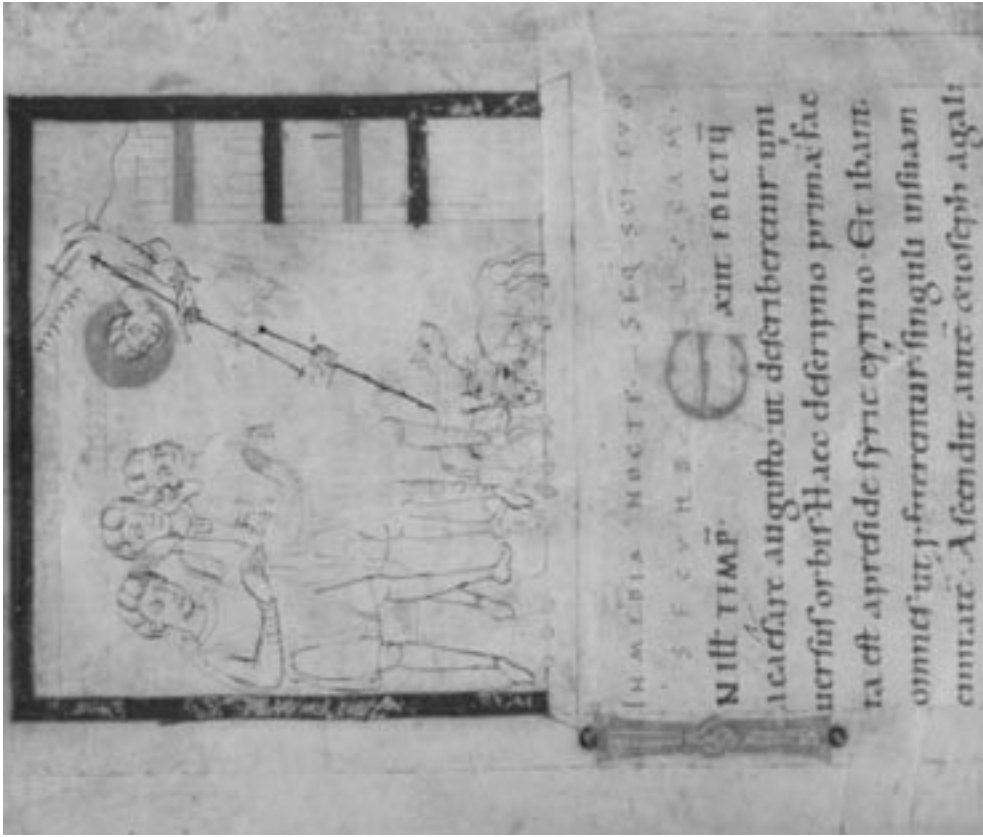 IN MEDIA NOCTE SEQ SCI EVG
SECVND LVCAM.
IN ILL TIMP̄. EXIIT EDICTŪ
A caesare augusto ut describeretur uni
uersus orbis. Haec descriptio prima fac
ta est apreside syrie cyrino. Et ibant
omnes ut profiterentur singuli insuam
ciuitatē. Ascendit autē et ioseph agali